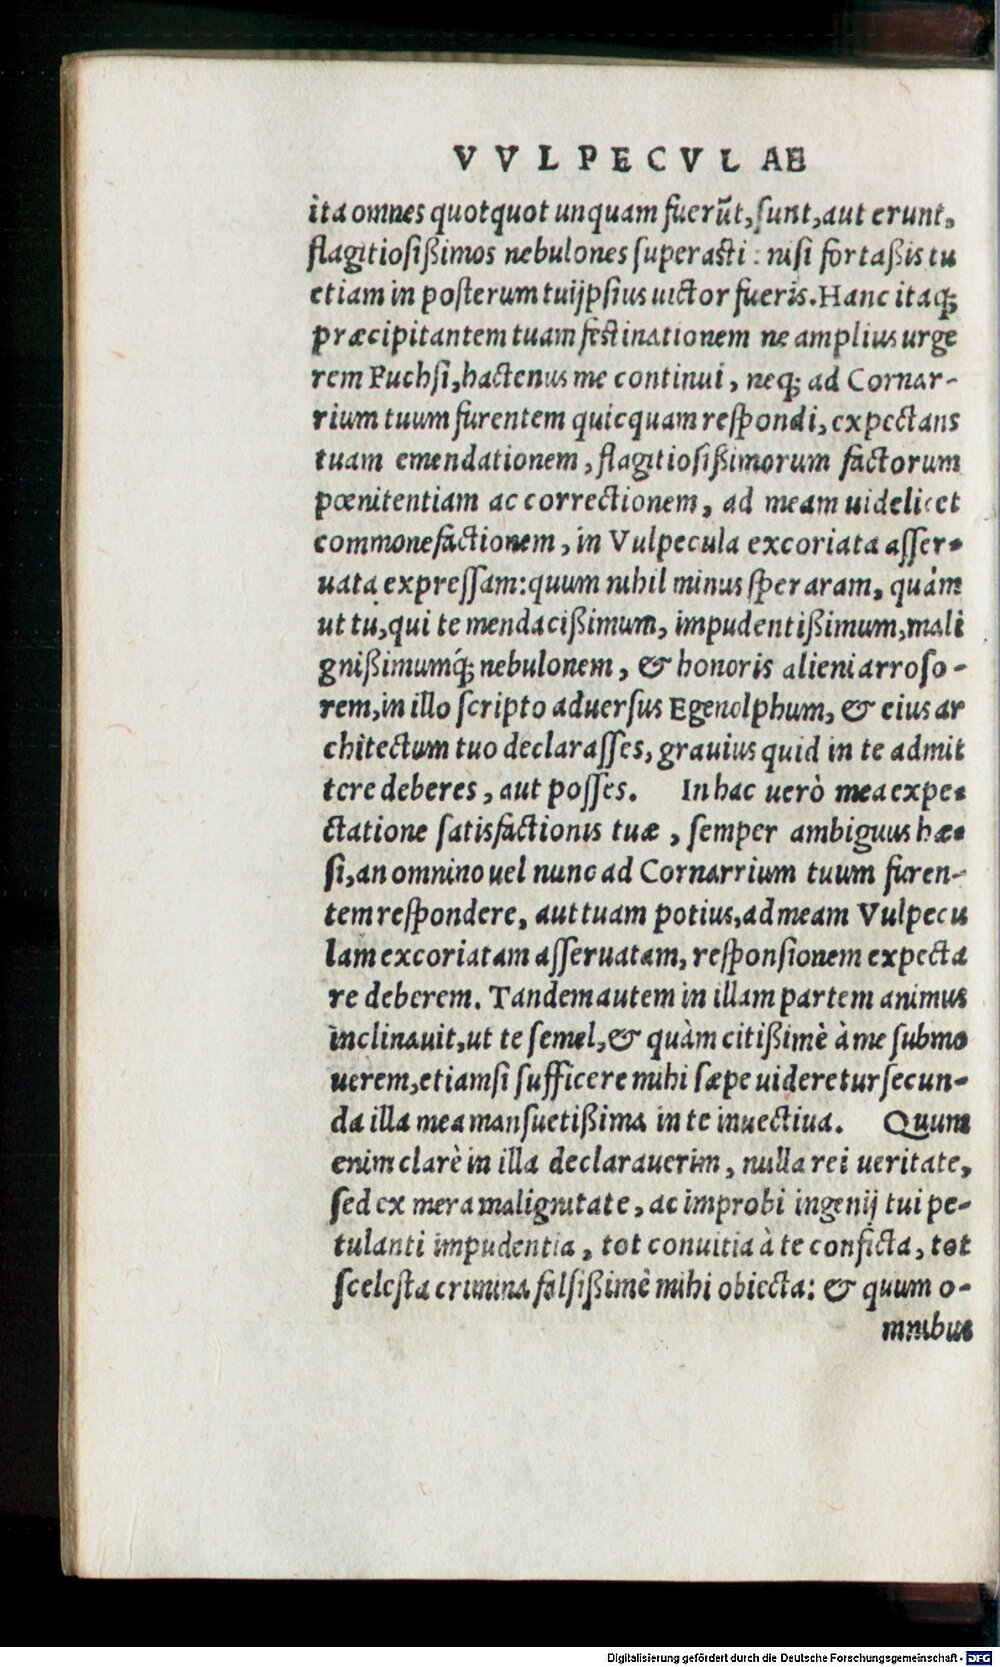 VVLPECVLAE
ita omnes quotquot unquam fuerūt, ſunt, aut erunt,
flagitioſißimos nebulones ſuperaſti : niſi fortaßis tu
etiam in poſterum tuijpſius uictor fueris. Hanc itaq;
præcipitantem tuam feſtinationem ne amplius urge
rem Fuchſi, hactenus me continui, neq; ad Cornar-
rium tuum furentem quicquam reſpondi, expectans
tuam emendationem, flagitioſißimorum factorum
pœnitentiam ac correctionem, ad meam uidelicet
commonefactionem, in Vulpecula excoriata aſſer-
uata expreſſam: quum nihil minus ſperaram, quàm
ut tu, qui te mendacißimum, impudentißimum, mali
gnißimumq́; nebulonem, & honoris alieni arroſo-
rem, in illo ſcripto aduerſus Egenolphum, & eius ar
chitectum tuo declaraſſes, grauius quid in te admit
tere deberes, aut poſſes. In hac uerò mea expe-
ctatione ſatisfactionis tuæ, ſemper ambiguus hæ-
ſi, an omnino uel nunc ad Cornarrium tuum furen-
tem reſpondere, aut tuam potius, ad meam Vulpecu
lam excoriatam aſſeruatam, reſponſionem expecta
re deberem. Tandem autem in illam partem animus
inclinauit, ut te ſemel, & quàm citißimè à me ſubmo
uerem, etiamſi ſufficere mihi ſæpe uideretur ſecun-
da illa mea manſuetißima in te inuectiua. Quum
enim clarè in illa declarauerim, nulla rei ueritate,
ſed ex mera malignitate, ac improbi ingenij tui pe-
tulanti impudentia, tot conuitia à te conficta, tot
ſceleſta crimina falſißimè mihi obiecta: & quum o-
mnibus
Digitalisierung gefördert durch die Deutsche Forschungsgemeinschaft - DFG